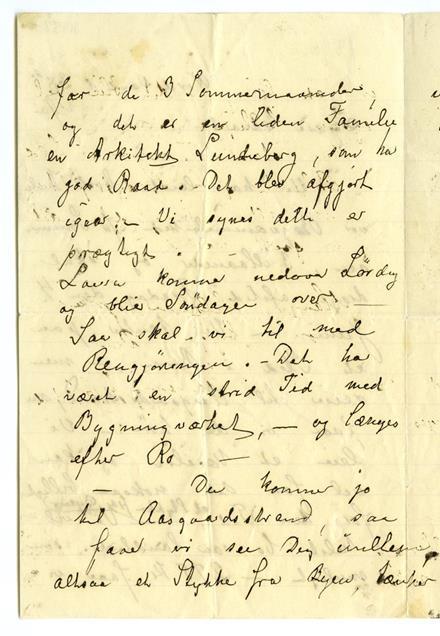 for de 3 Sommermaaneder,
og det er en liden Familie
en Arkitekt Lundeberg, som ha
god Raad. – Det blev afgjørt
igaar – Vi synes dette er
prægtigt. –
Laura komme nedover Lørdag
og blir Søndagen over –
Saa skal vi til med
Rengjøringen. – Det ha
været en strid Tid med
Bygningværket, – og længes
efter Ro –
– Du komme jo
til Aasgaardsstrand, saa
faar vi see Dig imellem,
altsaa et Stykke fra Byen,